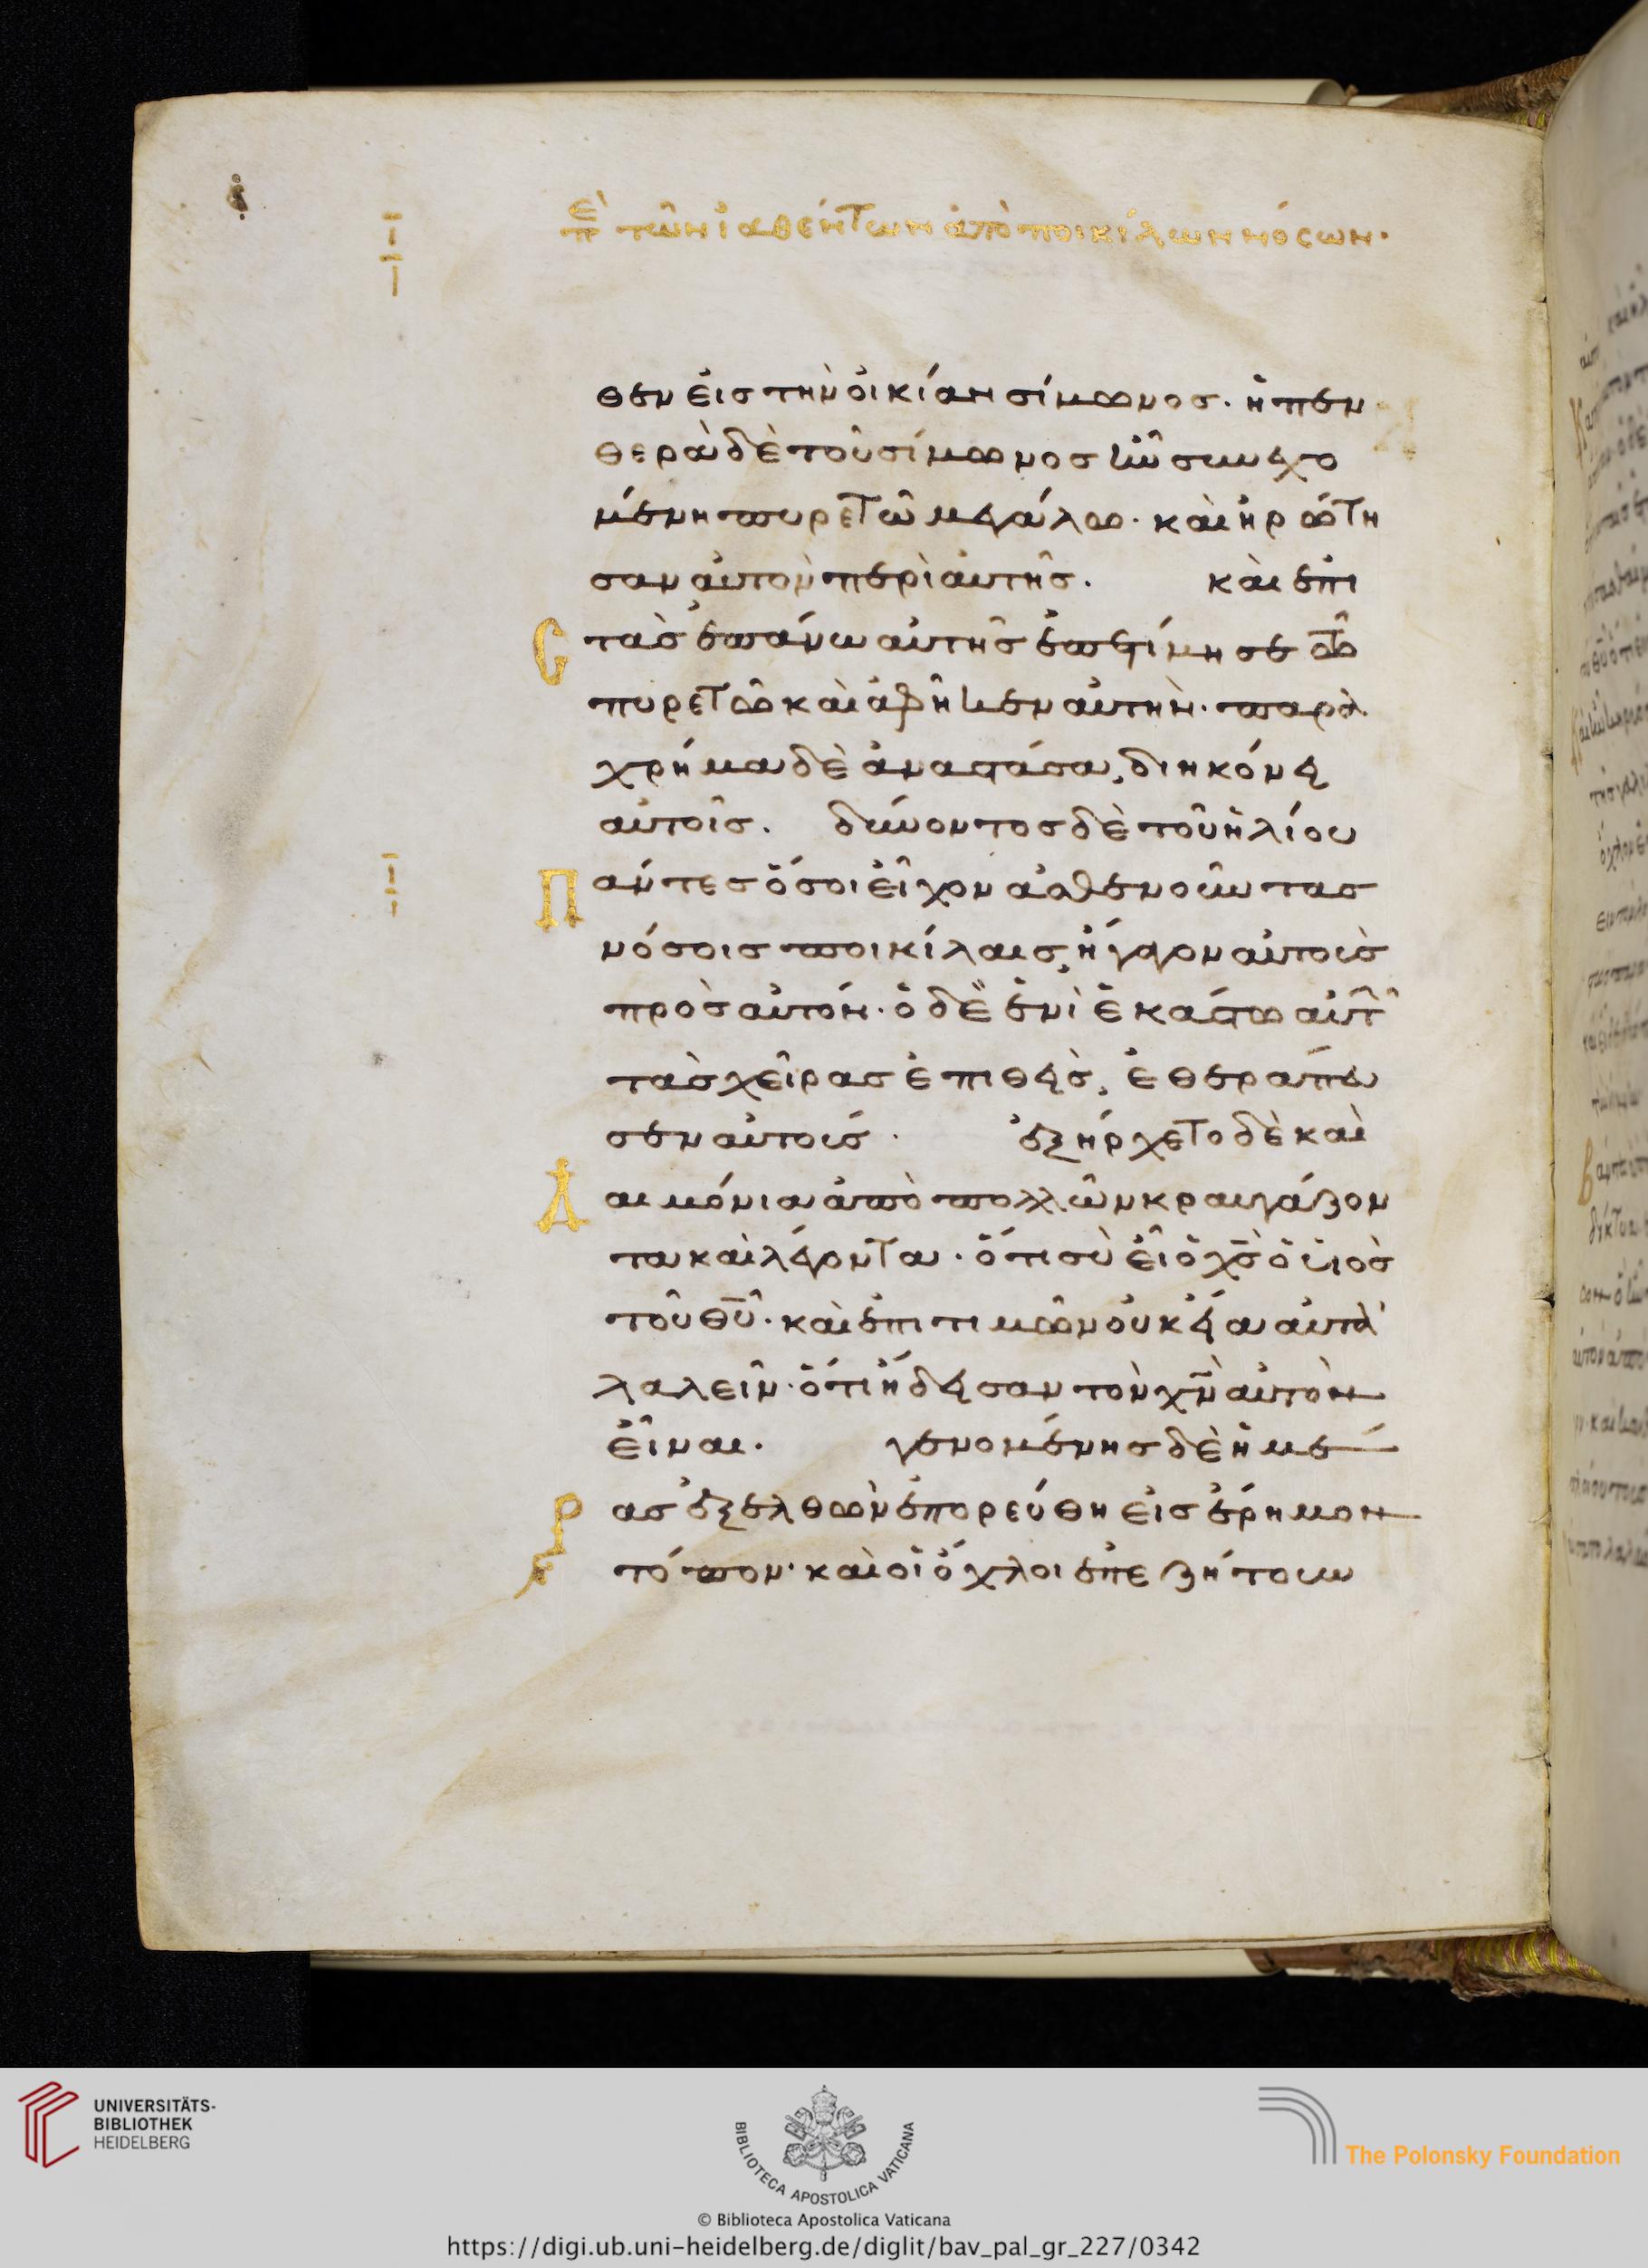 Περὶ τῶν ἰαθέντων ἀπὸ ποικίλων νόσων·
θεν εἰς τὴν οἰκίαν σίμωνος· ἡ πεν
θερὰ δὲ τοῦ σίμωνος ἦν συνεχο
μένη πυρετῶ μεγάλω· καὶ ἠρώτη
σαν αὐτὸν περὶ αὐτῆς. καὶ ἐπι
Στὰς ἐπάνω αὐτῆς ἐπετίμησε τῶ
πυρετῶ καὶ ἀφῆκεν αὐτὴν· παρα
χρήμα δὲ ἀναστάσα, διηκόνει
αὐτοῖς. δύνοντος δὲ τοῦ ἡλίου
Πάντες ὅσοι εἶχον ἀσθενοῦντας
νόσοις ποικίλαις, ἤγαγον αὐτοὺς
πρὸς αὐτόν· ὁ δὲ ἑνὶ ἑκάστω αὐτῶν
τὰς χεῖρας ἐπιθεὶς, ἐθεράπευ
σεν αὐτούς. ἐξήρχετο δὲ καὶ
Δαιμόνια ἀπὸ πολλῶν κραυγάζον
τα καὶ λέγοντα· ὅτι σὺ εἶ ὁ χς̅ ὁ υἱὸς
τοῦ θυ̅· καὶ ἐπιτιμῶν οὐκ εἴα αὐτὰ
λαλεῖν· ὅτι ἤδεισαν τὸν χν̅ αὐτὸν
εἶναι. γενομένης δὲ ἡμέ
Ρας ἐξελθὼν ἐπορεύθη εἰς ἔρημον
τόπον· καὶ οἱ ὄχλοι ἐπεζήτουν
UNIVERSITÄTS-
BIBLIOTHEK
HEIDELBERG
BIBLIOTECA APOSTOLICA VATICANA
The Polonsky Foundation
© Biblioteca Apostolica Vaticana
https://digi.ub.uni-heidelberg.de/diglit/bav_pal_gr_227/0342